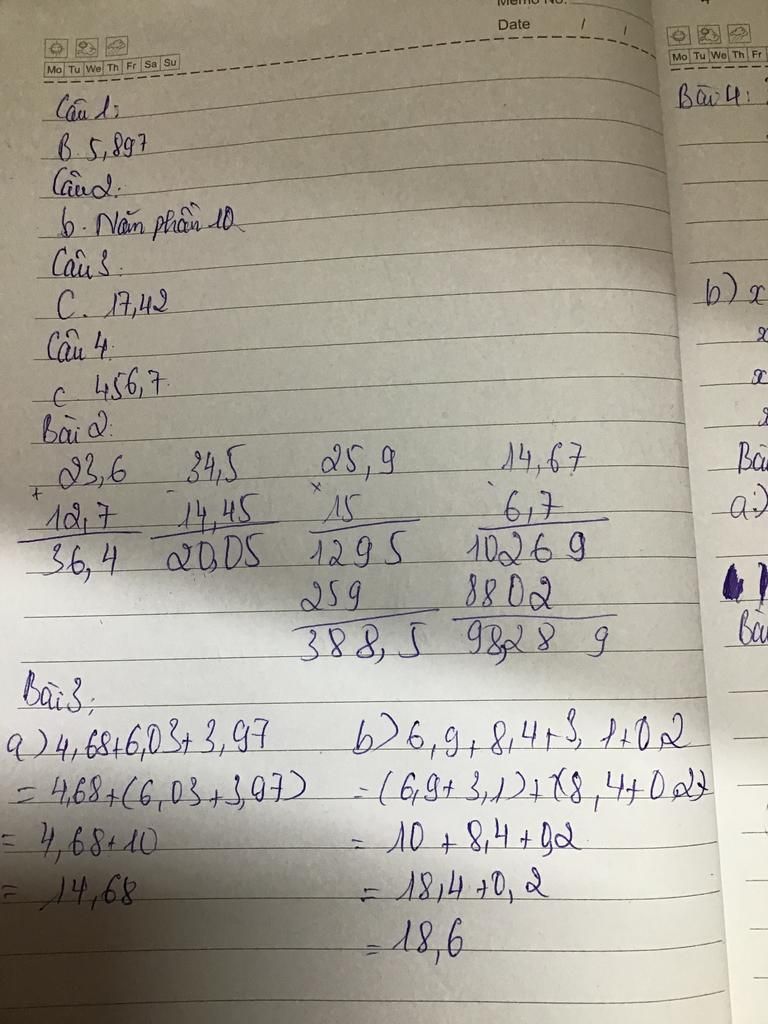 Memo No.
Date / /
Mo Tu We Th Fr Sa Su
Câu 1:
B. 5,897
Câu 2:
b. Năm phần 10
Câu 3:
C. 17,42
Câu 4:
c 456,7
Bài 2:
23,6 34,5 25,9 14,67
+ - × .
12,7 14,45 15 6,7
36,4 20,05 1295 10269
259 8802
388,5 98,289
Bài 3:
a) 4,68+6,03+3,97 b) 6,9+8,4+3,1+0,2
= 4,68+(6,03+3,97) = (6,9+3,1)+(8,4+0,2)
= 4,68+10 = 10+8,4+0,2
= 14,68 = 18,4+0,2
= 18,6
Mo Tu We Th Fr
Bài 4:
b) x
x
x
a)